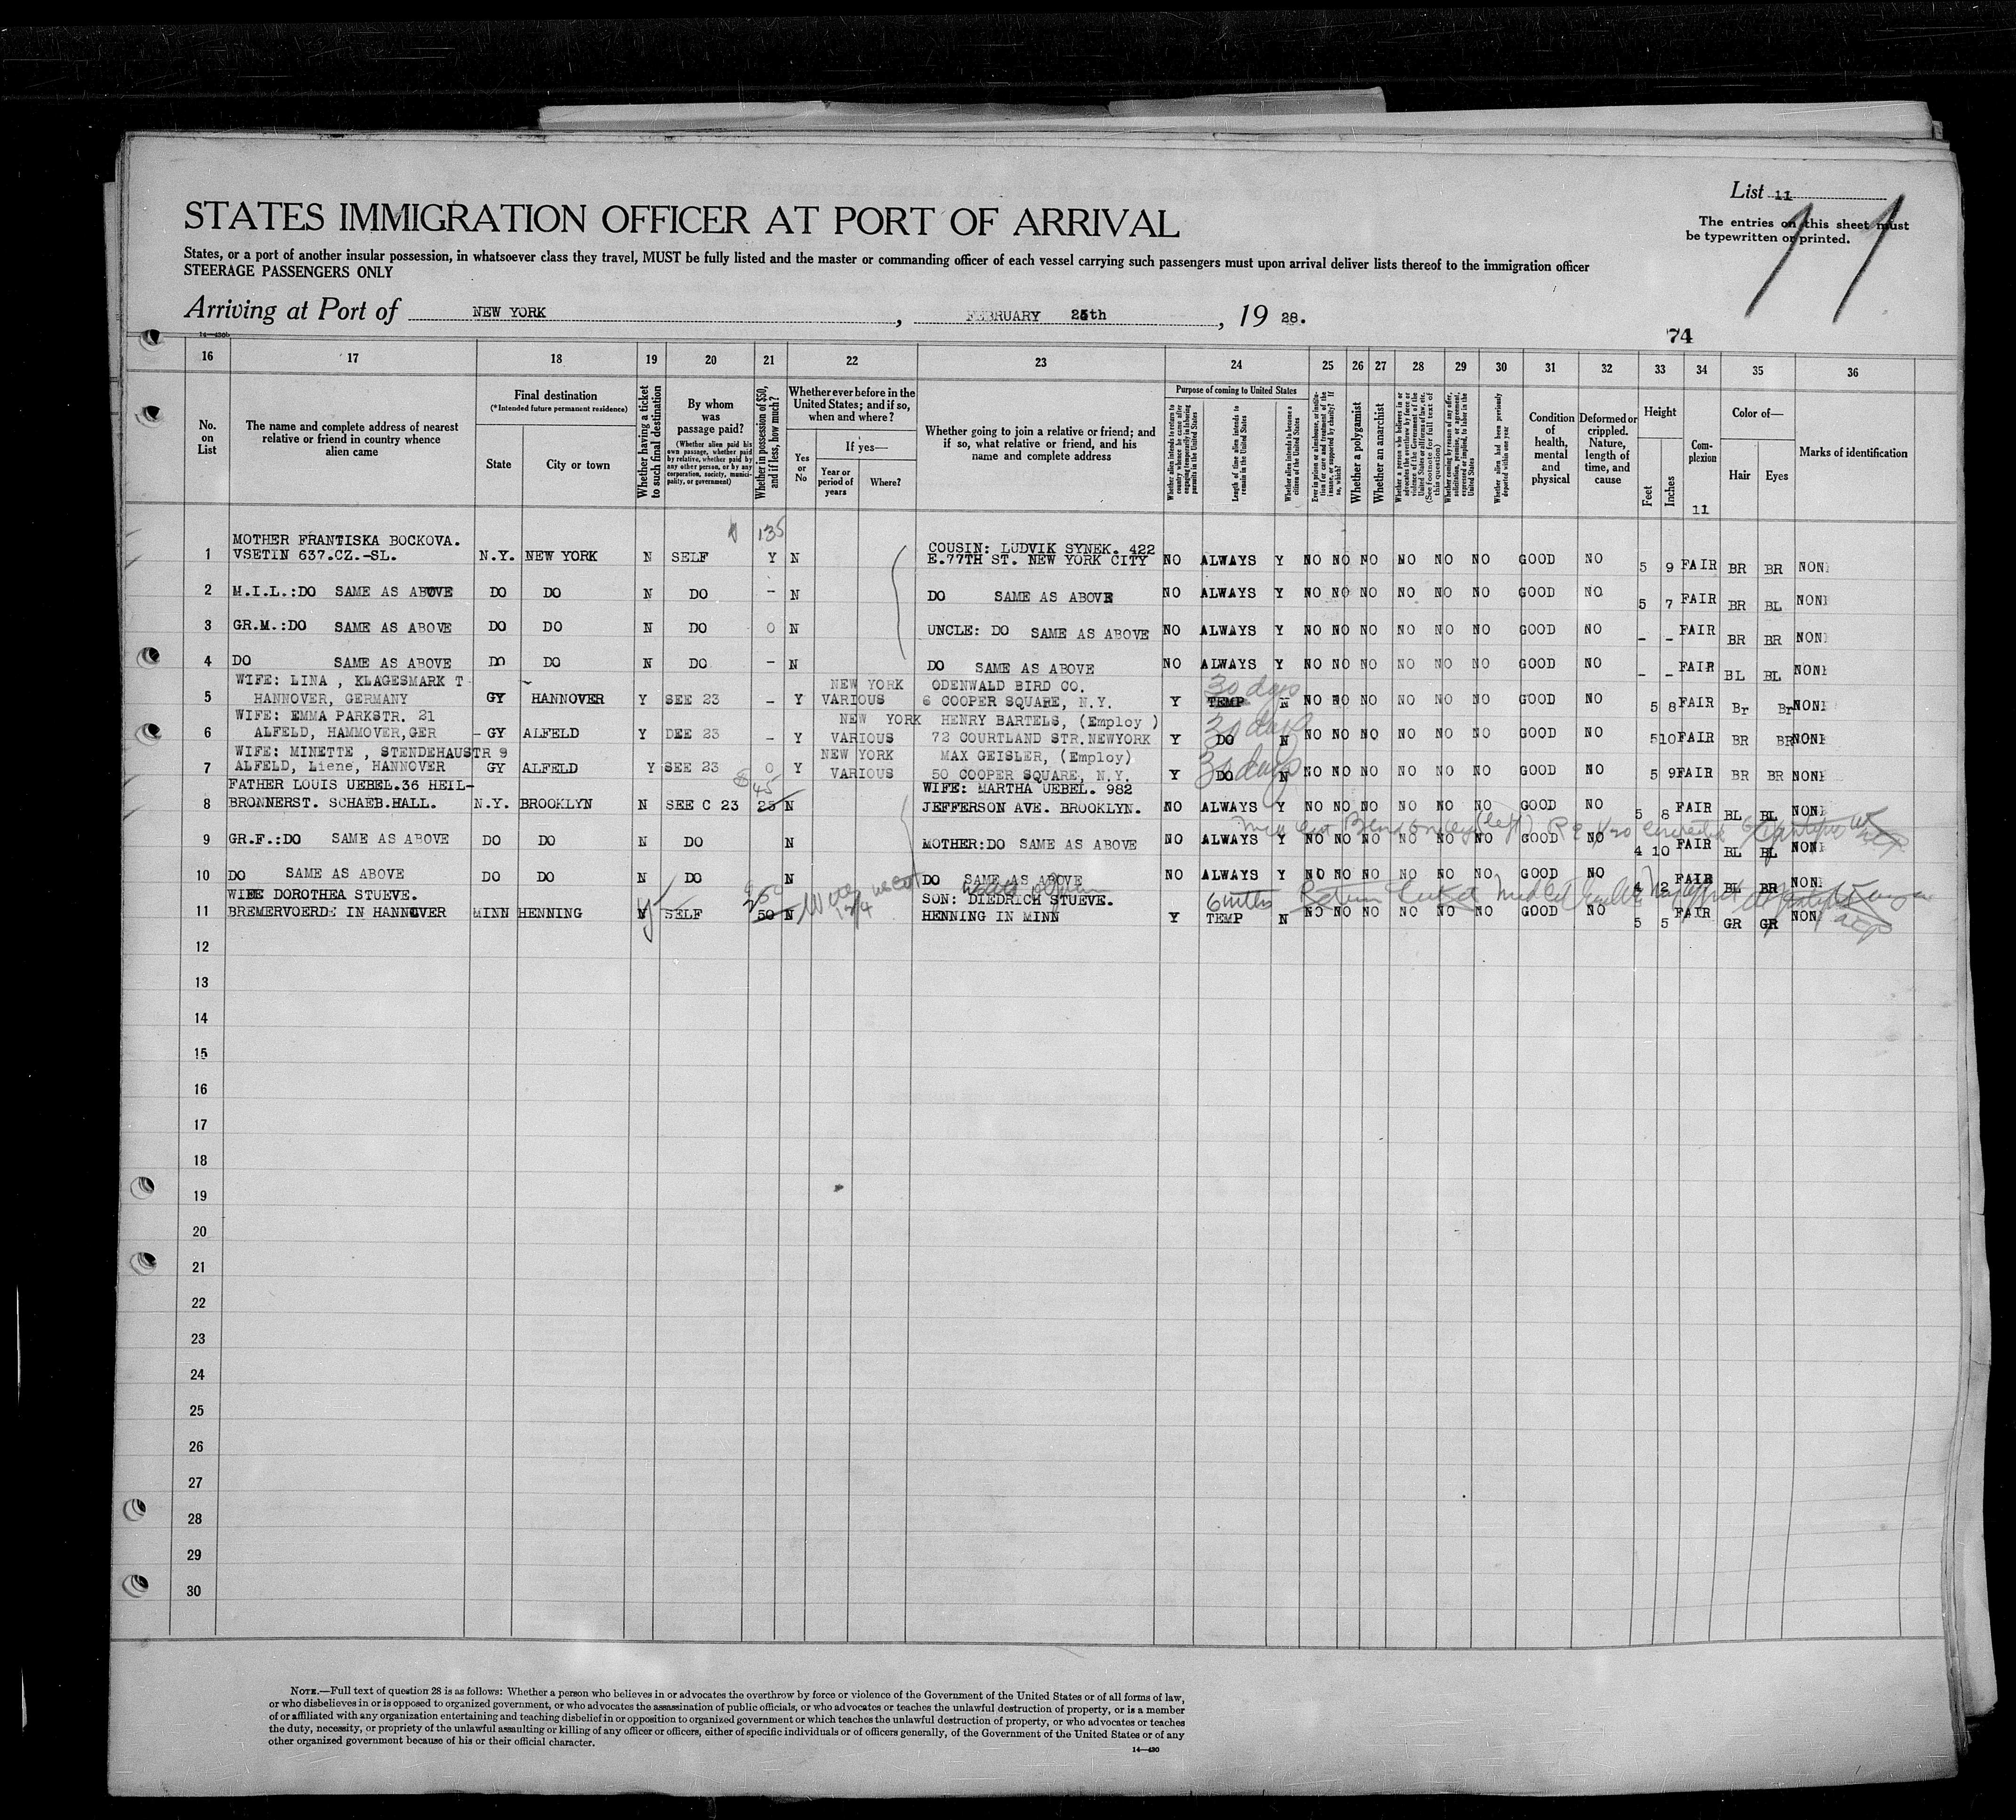 List 11
STATES IMMIGRATION OFFICER AT PORT OF ARRIVAL
The entries on this sheet must
be typewritten or printed.
11
States, or a port of another insular possession, in whatsoever class they travel, MUST be fully listed and the master or commanding officer of each vessel carrying such passengers must upon arrival deliver lists thereof to the immigration officer
STEERAGE PASSENGERS ONLY
Arriving at Port of NEW YORK, FEBRUARY 25th, 19 28.
14—430b
74
16 17 18 19 20 21 22 23 24 25 26 27 28 29 30 31 32 33 34 35 36
No. on List
The name and complete address of nearest relative or friend in country whence alien came
Final destination
(*Intended future permanent residence)
State
City or town
Whether having a ticket to such final destination
By whom was passage paid?
(Whether alien paid his own passage, whether paid by relative, whether paid by any other person, or by any corporation, society, municipality, or government)
Whether in possession of $50, and if less, how much?
Whether ever before in the United States; and if so, when and where?
Yes or No
If yes—
Year or period of years
Where?
Whether going to join a relative or friend; and if so, what relative or friend, and his name and complete address
Purpose of coming to United States
Whether alien intends to return to country whence he came after engaging temporarily in laboring pursuits in the United States
Length of time alien intends to remain in the United States
Whether alien intends to become a citizen of the United States
Ever in prison or almshouse, or institution for care and treatment of the insane, or supported by charity? If so, which?
Whether a polygamist
Whether an anarchist
Whether a person who believes in or advocates the overthrow by force or violence of the Government of the United States or all forms of law, etc. (See footnote for full text of this question)
Whether coming by reason of any offer, solicitation, promise, or agreement, expressed or implied, to labor in the United States
Whether alien had been previously deported within one year
Condition of health, mental and physical
Deformed or crippled. Nature, length of time, and cause
Height
Feet
Inches
Complexion
11
Color of—
Hair
Eyes
Marks of identification
135
MOTHER FRANTISKA BOCKOVA. COUSIN: LUDVIK SYNEK. 422
1 VSETIN 637.CZ.-SL. N.Y. NEW YORK N SELF Y N E.77TH ST. NEW YORK CITY NO ALWAYS Y NO NO NO NO NO NO GOOD NO 5 9 FAIR BR BR NONE
2 M.I.L.:DO SAME AS ABOVE DO DO N DO - N DO SAME AS ABOVE NO ALWAYS Y NO NO NO NO NO NO GOOD NO 5 7 FAIR BR BL NONE
3 GR.M.:DO SAME AS ABOVE DO DO N DO 0 N UNCLE: DO SAME AS ABOVE NO ALWAYS Y NO NO NO NO NO NO GOOD NO - - FAIR BR BR NONE
4 DO SAME AS ABOVE DO DO N DO - N DO SAME AS ABOVE NO ALWAYS Y NO NO NO NO NO NO GOOD NO - - FAIR BL BL NONE
WIFE: LINA , KLAGESMARK T NEW YORK ODENWALD BIRD CO. 30 days
5 HANNOVER, GERMANY GY HANNOVER Y SEE 23 - Y VARIOUS 6 COOPER SQUARE, N.Y. Y TEMP N NO NO NO NO NO NO GOOD NO 5 8 FAIR Br Br NONE
WIFE: EMMA PARKSTR. 21 NEW YORK HENRY BARTELS, (Employ ) 30 days
6 ALFELD, HAMMOVER,GER - GY ALFELD Y DEE 23 - Y VARIOUS 72 COURTLAND STR.NEWYORK Y DO N NO NO NO NO NO NO GOOD NO 5 10 FAIR BR BR NONE
WIFE: MINETTE , STENDEHAUSTR 9 NEW YORK MAX GEISLER, (Employ) 30 days
7 ALFELD, Liene, HANNOVER GY ALFELD Y SEE 23 0 Y VARIOUS 50 COOPER SQUARE, N.Y. Y DO N NO NO NO NO NO NO GOOD NO 5 9 FAIR BR BR NONE
FATHER LOUIS UEBEL.36 HEIL- $45 WIFE: MARTHA UEBEL. 982
8 BRONNERST. SCHAEB.HALL. N.Y. BROOKLYN N SEE C 23 25 N JEFFERSON AVE. BROOKLYN. NO ALWAYS Y NO NO NO NO NO NO GOOD NO 5 8 FAIR BL BL NONE
9 GR.F.:DO SAME AS ABOVE DO DO N DO N MOTHER:DO SAME AS ABOVE NO ALWAYS Y NO NO NO NO NO NO GOOD NO 4 10 FAIR BL BL NONE
10 DO SAME AS ABOVE DO DO N DO N DO SAME AS ABOVE NO ALWAYS Y NO NO NO NO NO NO GOOD NO 4 2 FAIR BL BR NONE
WIFE DOROTHEA STUEVE. SON: DIEDRICH STUEVE. 6 mths Return ticket
11 BREMERVOERDE IN HANNOVER MINN HENNING N y SELF 50 N HENNING IN MINN Y TEMP N NO NO NO NO NO NO GOOD NO 5 5 FAIR GR GR NON
12
13
14
15
16
17
18
19
20
21
22
23
24
25
26
27
28
29
30
NOTE.—Full text of question 28 is as follows: Whether a person who believes in or advocates the overthrow by force or violence of the Government of the United States or of all forms of law,
or who disbelieves in or is opposed to organized government, or who advocates the assassination of public officials, or who advocates or teaches the unlawful destruction of property, or is a member
of or affiliated with any organization entertaining and teaching disbelief in or opposition to organized government or which teaches the unlawful destruction of property, or who advocates or teaches
the duty, necessity, or propriety of the unlawful assaulting or killing of any officer or officers, either of specific individuals or of officers generally, of the Government of the United States or of any
other organized government because of his or their official character.
14—430